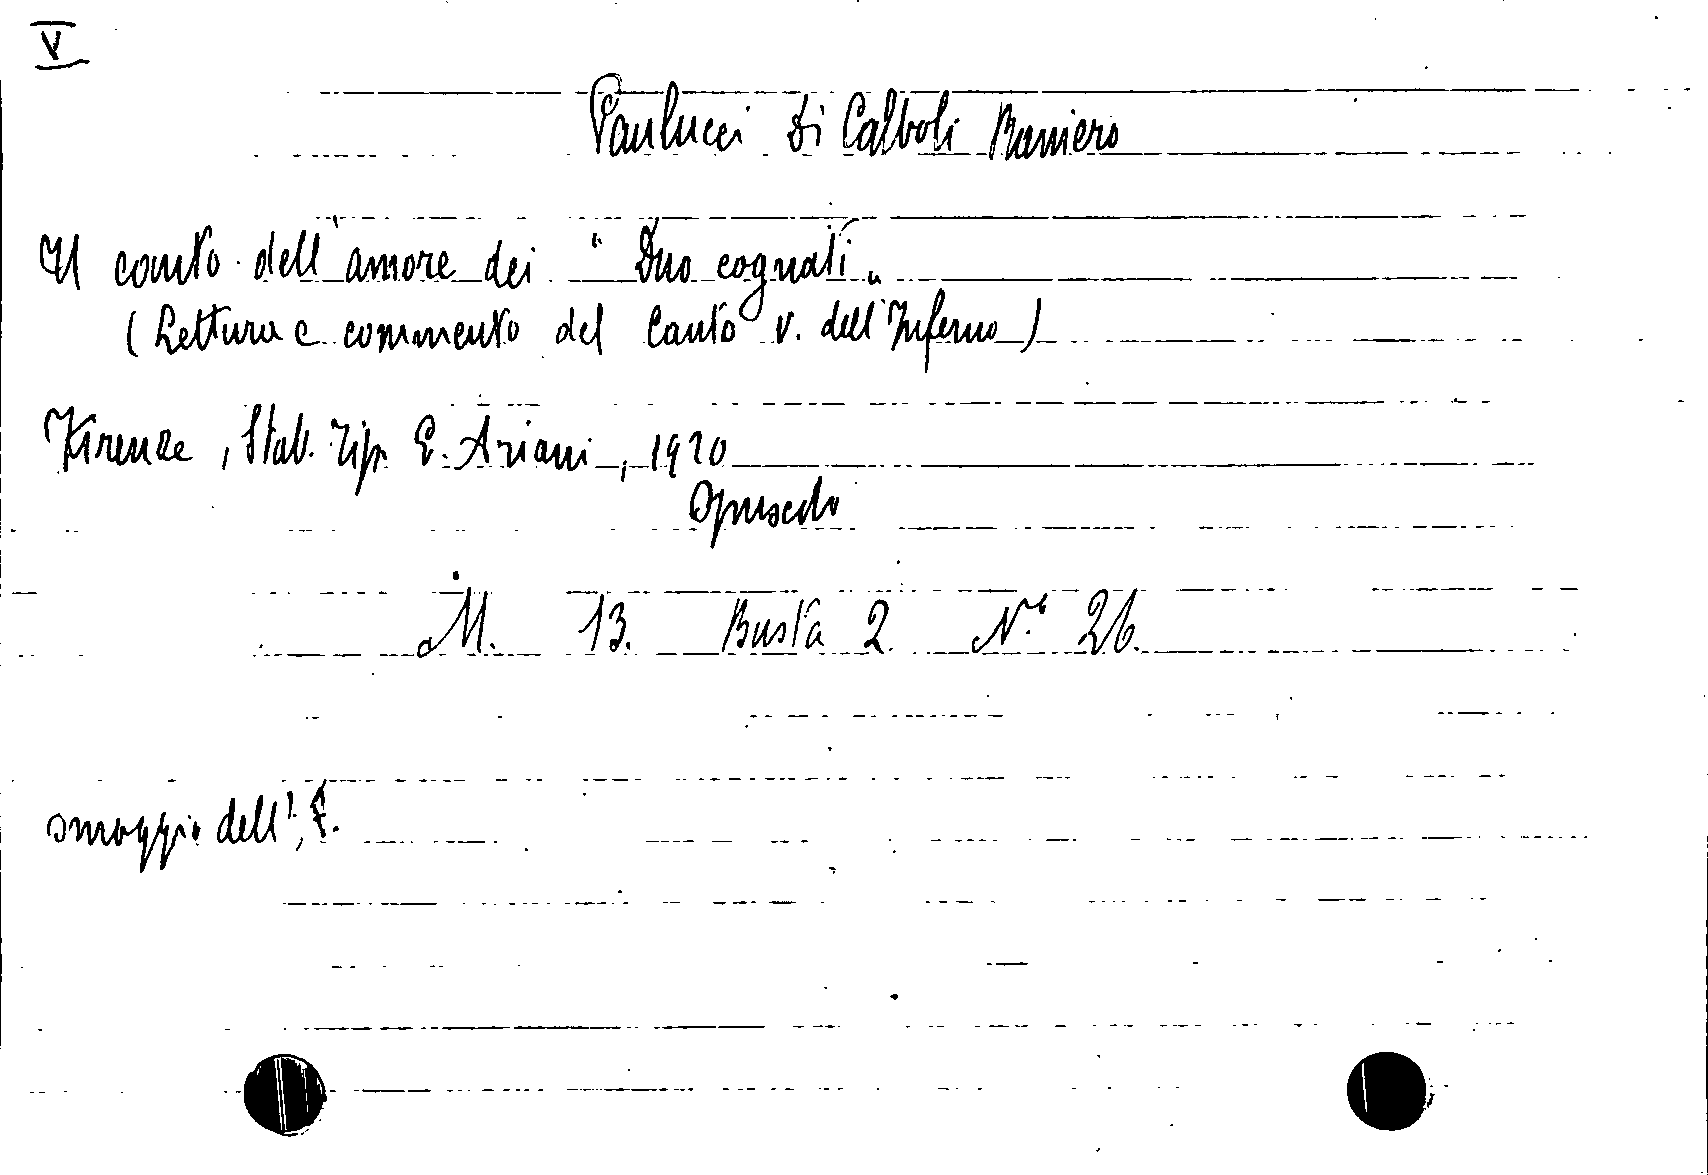 V
Paulucci di Calboli Raniero
Il canto dell'amore dei "Duo cognati"
(Lettura e commento del Canto V. dell'Inferno)
Firenze, Stab. Tip. E. Ariani, 1920
Opuscolo
M. 13. Busta 2 N.° 26.
omaggio dell'